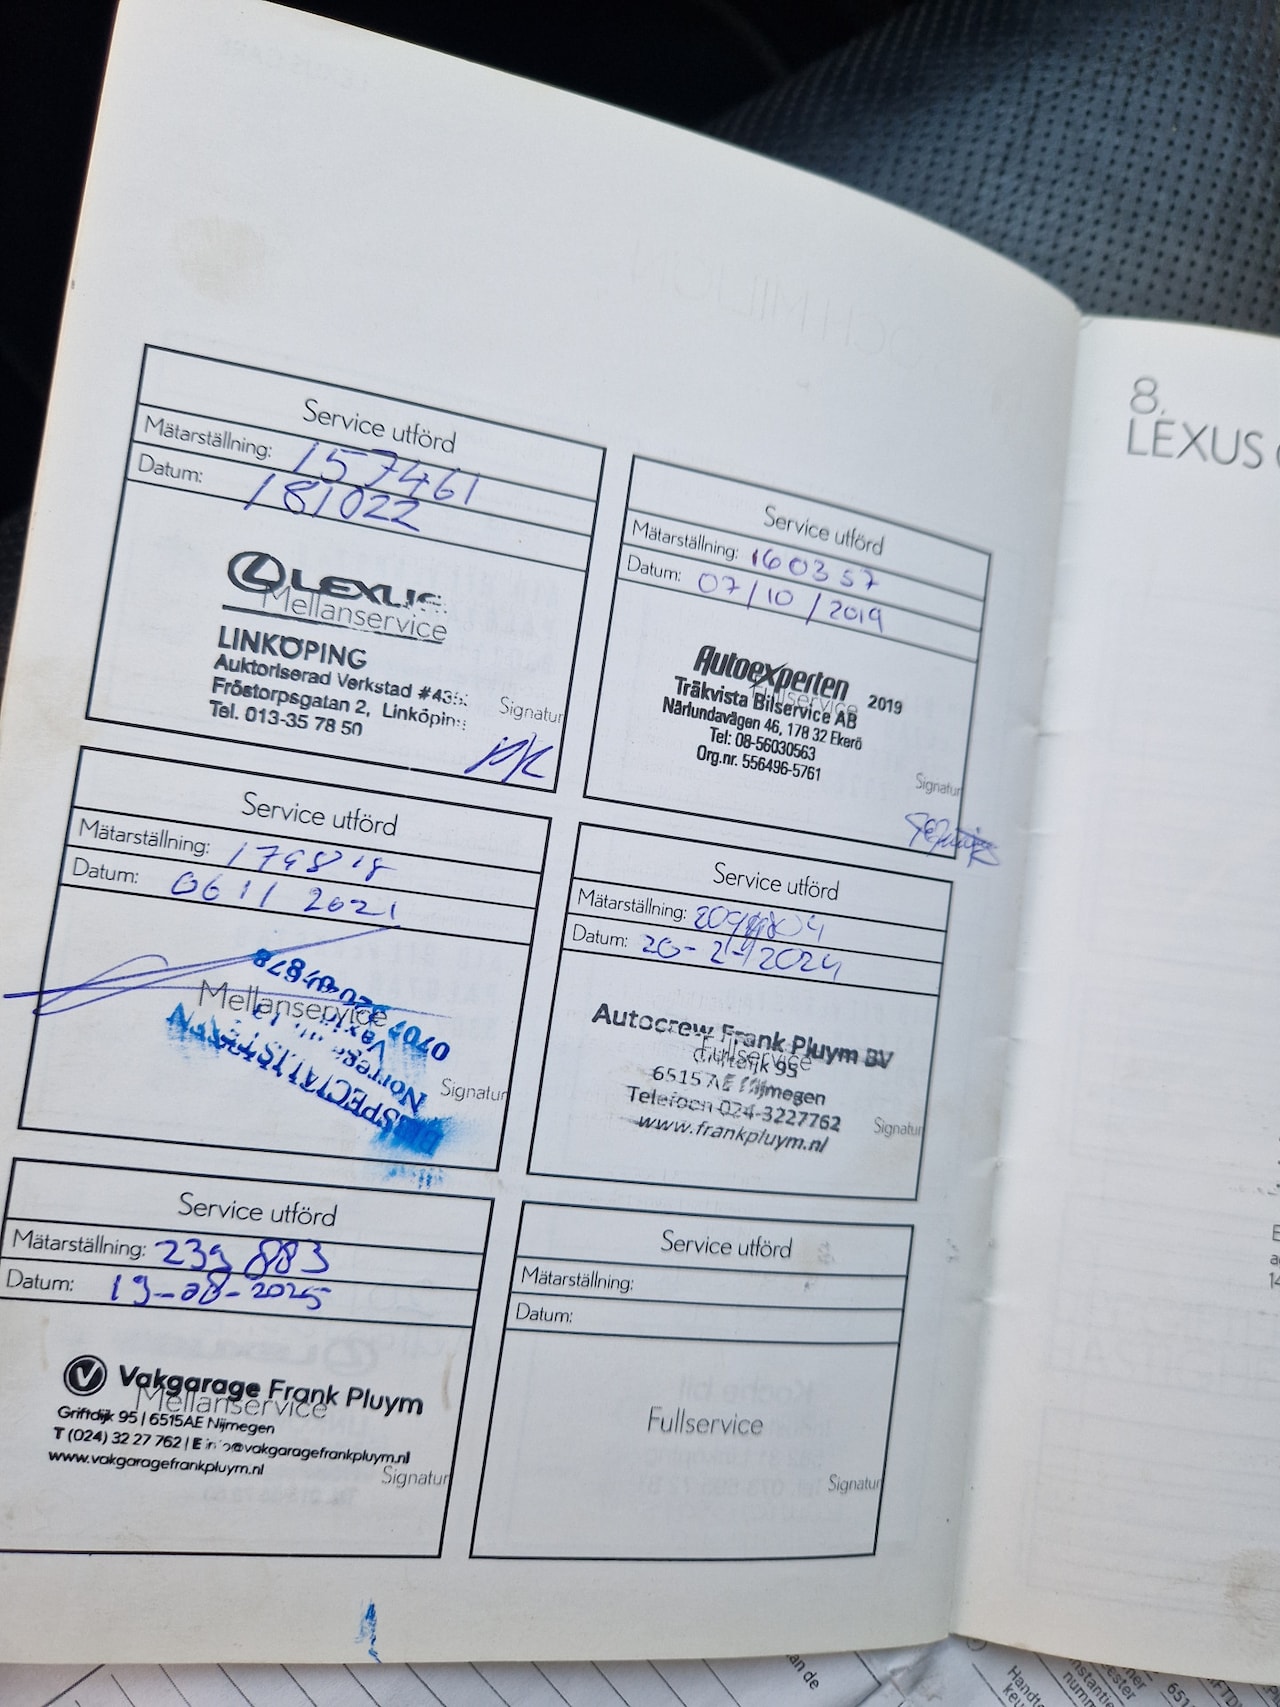 Service utförd
Mätarställning: 157461
Datum: 181022
LEXUS
Mellanservice
LINKÖPING
Auktoriserad Verkstad
Fröstorpsgatan 2, Linköping
Tel. 013-35 78 50
Signatur
Service utförd
Mätarställning: 160357
Datum: 07/10/2019
Autoexperten 2019
Fullservice
Träkvista Bilservice AB
Närlundavägen 46, 178 32 Ekerö
Tel: 08-56030563
Org.nr. 556496-5761
Signatur
Service utförd
Mätarställning: 179818
Datum: 0611 2021
Mellanservice
Signatur
Service utförd
Mätarställning:
Datum: 20-2-2024
Autocrew Frank Pluym BV
Fullservice
95
Nijmegen
Telefoon 024-3227762
www.frankpluym.nl
Signatur
Service utförd
Mätarställning: 239 883
Datum: 19-08-2025
Vakgarage Frank Pluym
Mellanservice
Griftdijk 95 | 6515AE Nijmegen
T (024) 32 27 762 | E info@vakgaragefrankpluym.nl
www.vakgaragefrankpluym.nl
Signatur
Service utförd
Mätarställning:
Datum:
Fullservice
Signatur
8.
LEXUS